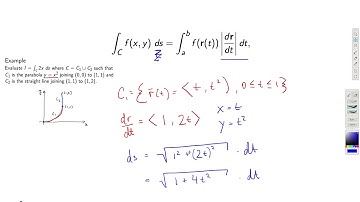 ∫_C f(x, y) ds = ∫_a^b f(r(t)) |dr/dt| dt,
Example
Evaluate I = ∫_C 2x ds where C = C₁ ∪ C₂ such that
C₁ is the parabola y = x² joining (0,0) to (1,1) and
C₂ is the straight line joining (1,1) to (1,2).
C₁ = { r̄(t) = < t, t² >, 0 ≤ t ≤ 1 }
dr/dt = < 1, 2t >
x = t
y = t²
ds = √(1² + (2t)²) · dt
= √(1 + 4t²) · dt